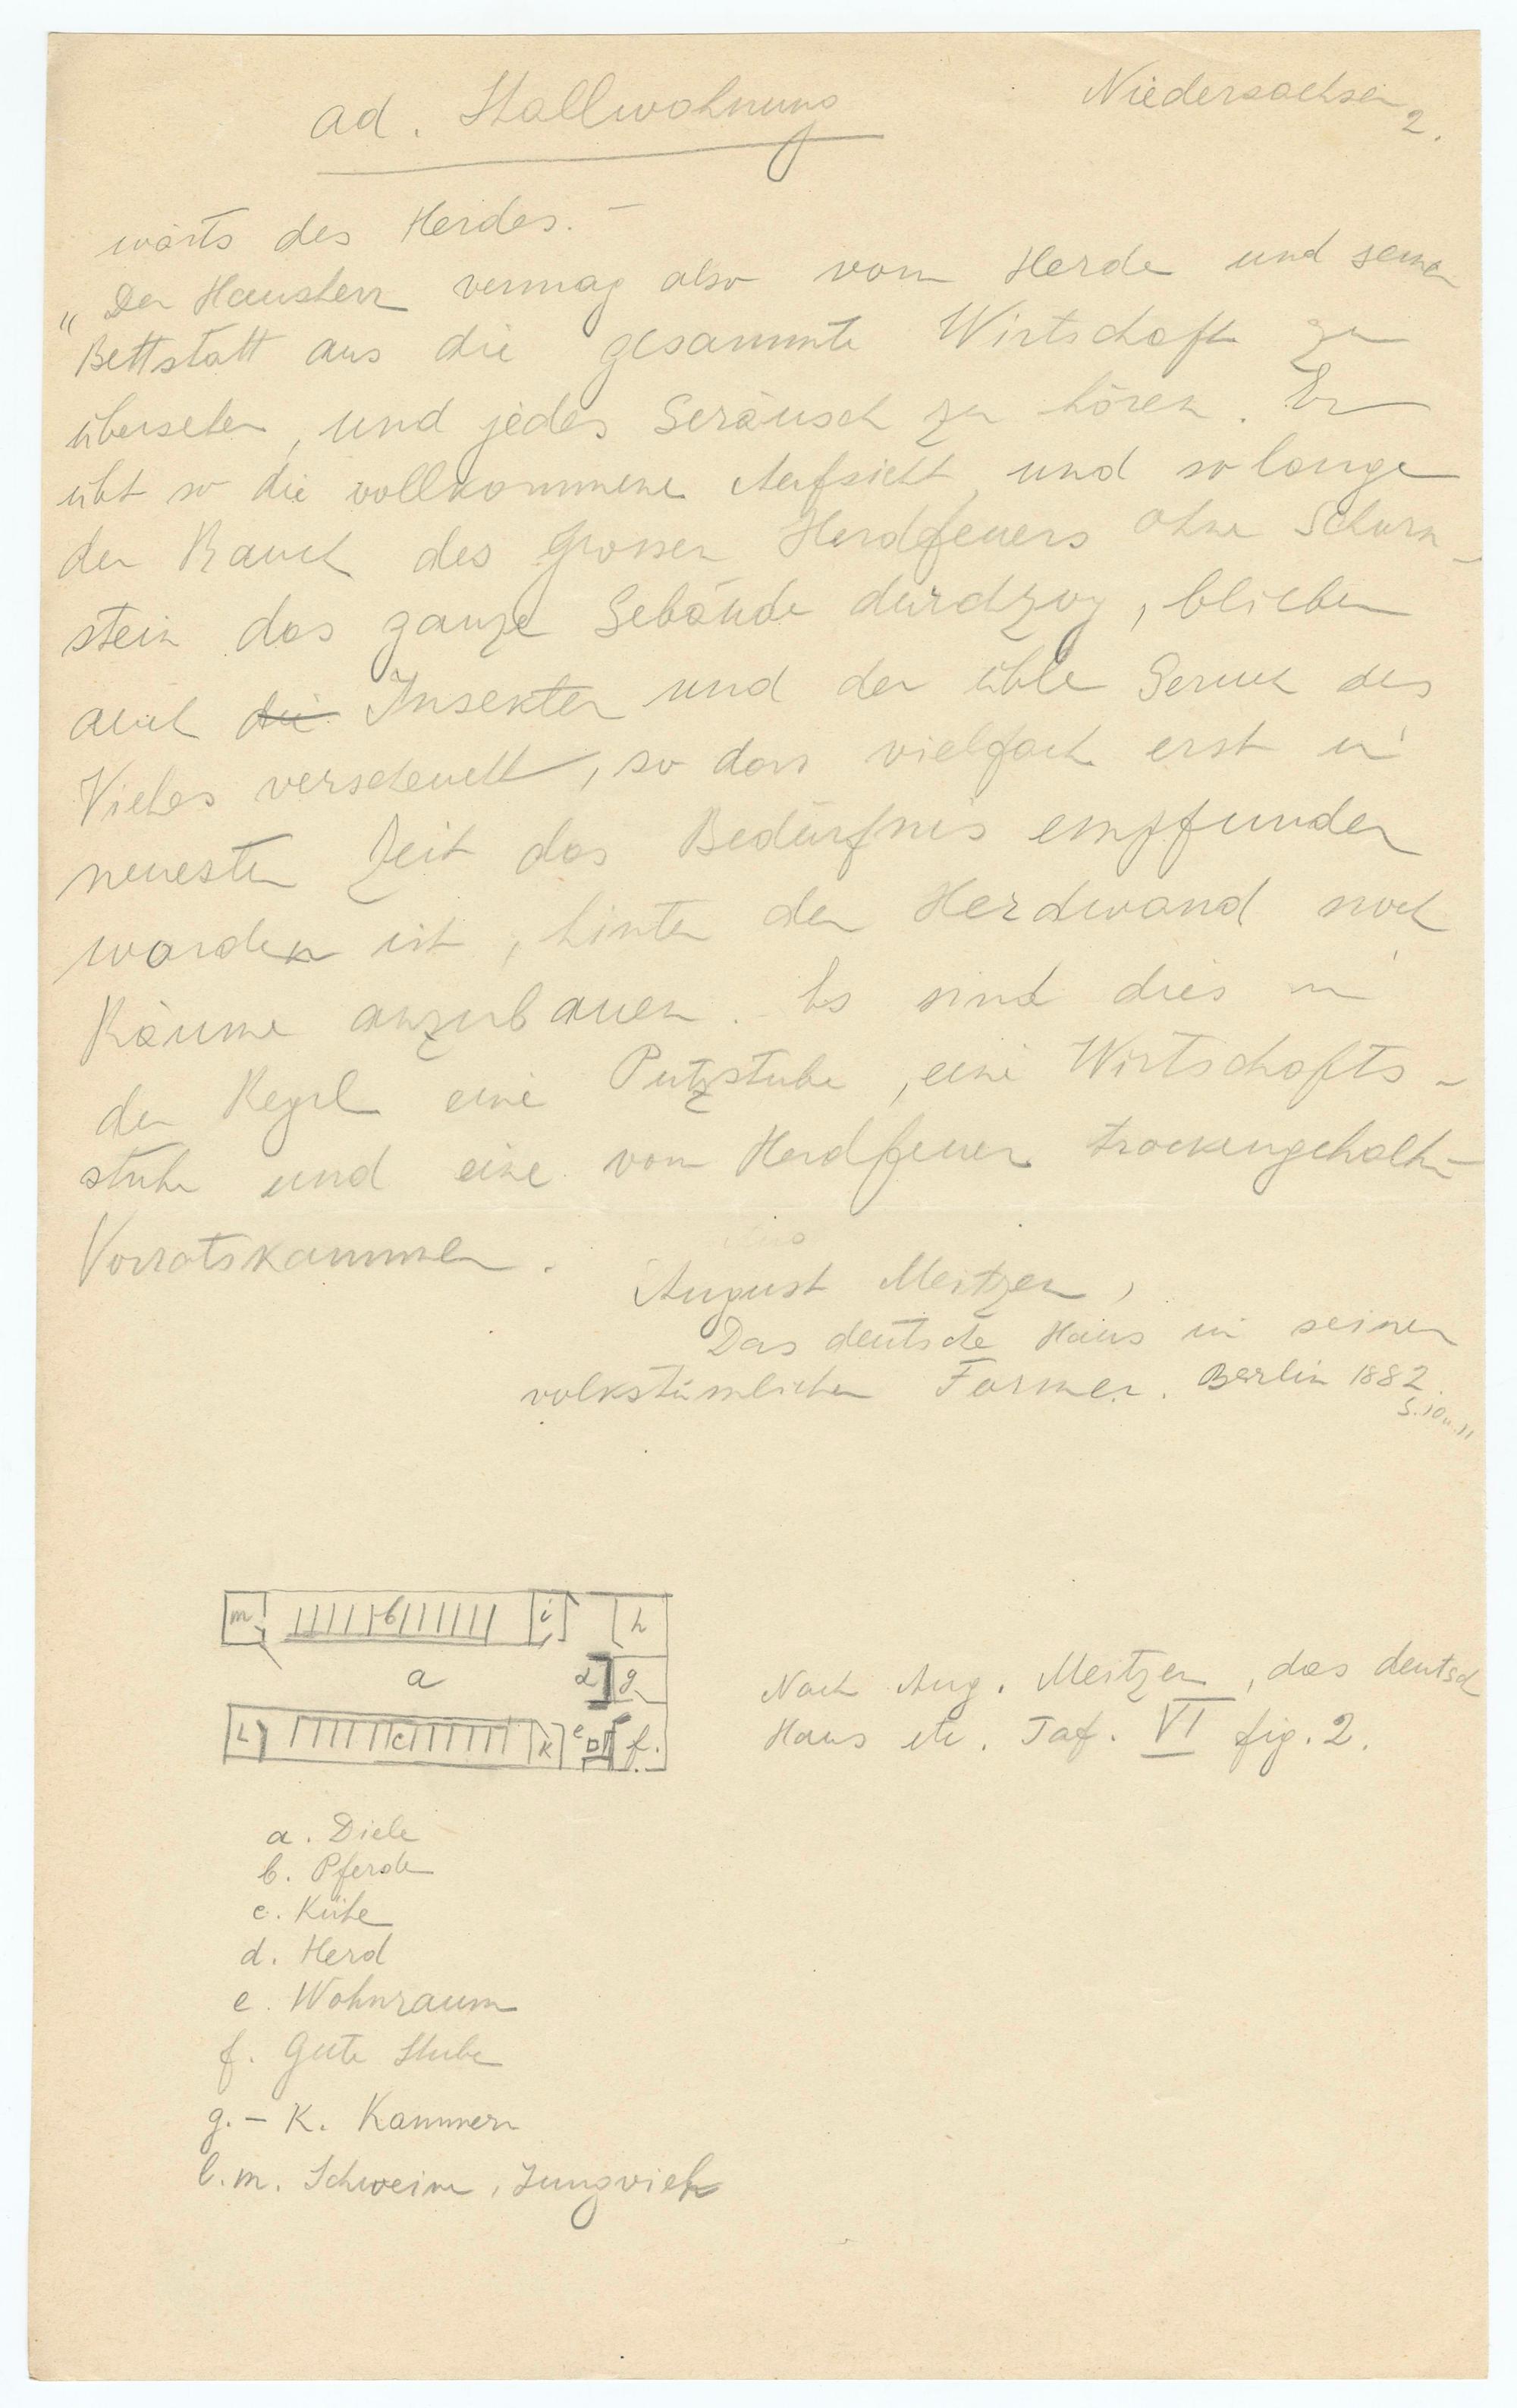 ad. Stallwohnung
Niedersachsen
2.
wärts des Herdes. –
„ Der Hausherr vermag also vom Herde und seiner
Bettstatt aus die gesammte Wirtschaft zu
übersehen, und jedes Geräusch zu hören. Er
übt so die vollkommene Aufsicht, und so lange
der Rauch des grossen Herdfeuers ohne Schorn-
stein das ganze Gebäude durchzog, blieben
auch die Insekten und der üble Geruch des
Viehes verscheucht, so dass vielfach erst in
neuester Zeit das Bedürfnis empfunden
worden ist, hinter der Herdwand noch
Räume anzubauen. Es sind dies in
der Regel eine Putzstube, eine Wirtschafts-
stube und eine vom Herdfeuer trockengehaltene
Vorratskammer.
August Meitzen,
Das deutsche Haus in seinen
volkstümlichen Formen. Berlin 1882.
S. 10 u. 11
m b i h
a d g
L c k e f.
Nach Aug. Meitzen, das deutsch
Haus etc. Taf. VI fig. 2.
a. Diele
b. Pferde
c. Kühe
d. Herd
e. Wohnraum
f. Gute Stube
g. – K. Kammern
l. m. Schweine, Jungvieh